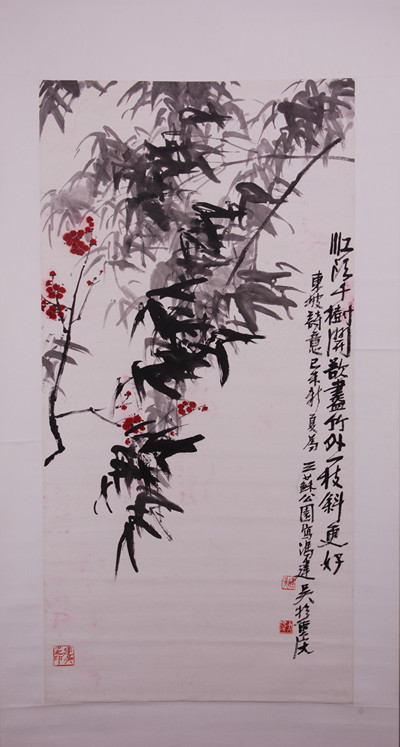 江頭千樹開欲盡竹外一枝斜更好
東坡詩意己未新夏為三蘇公園寫馮建吳於重庆